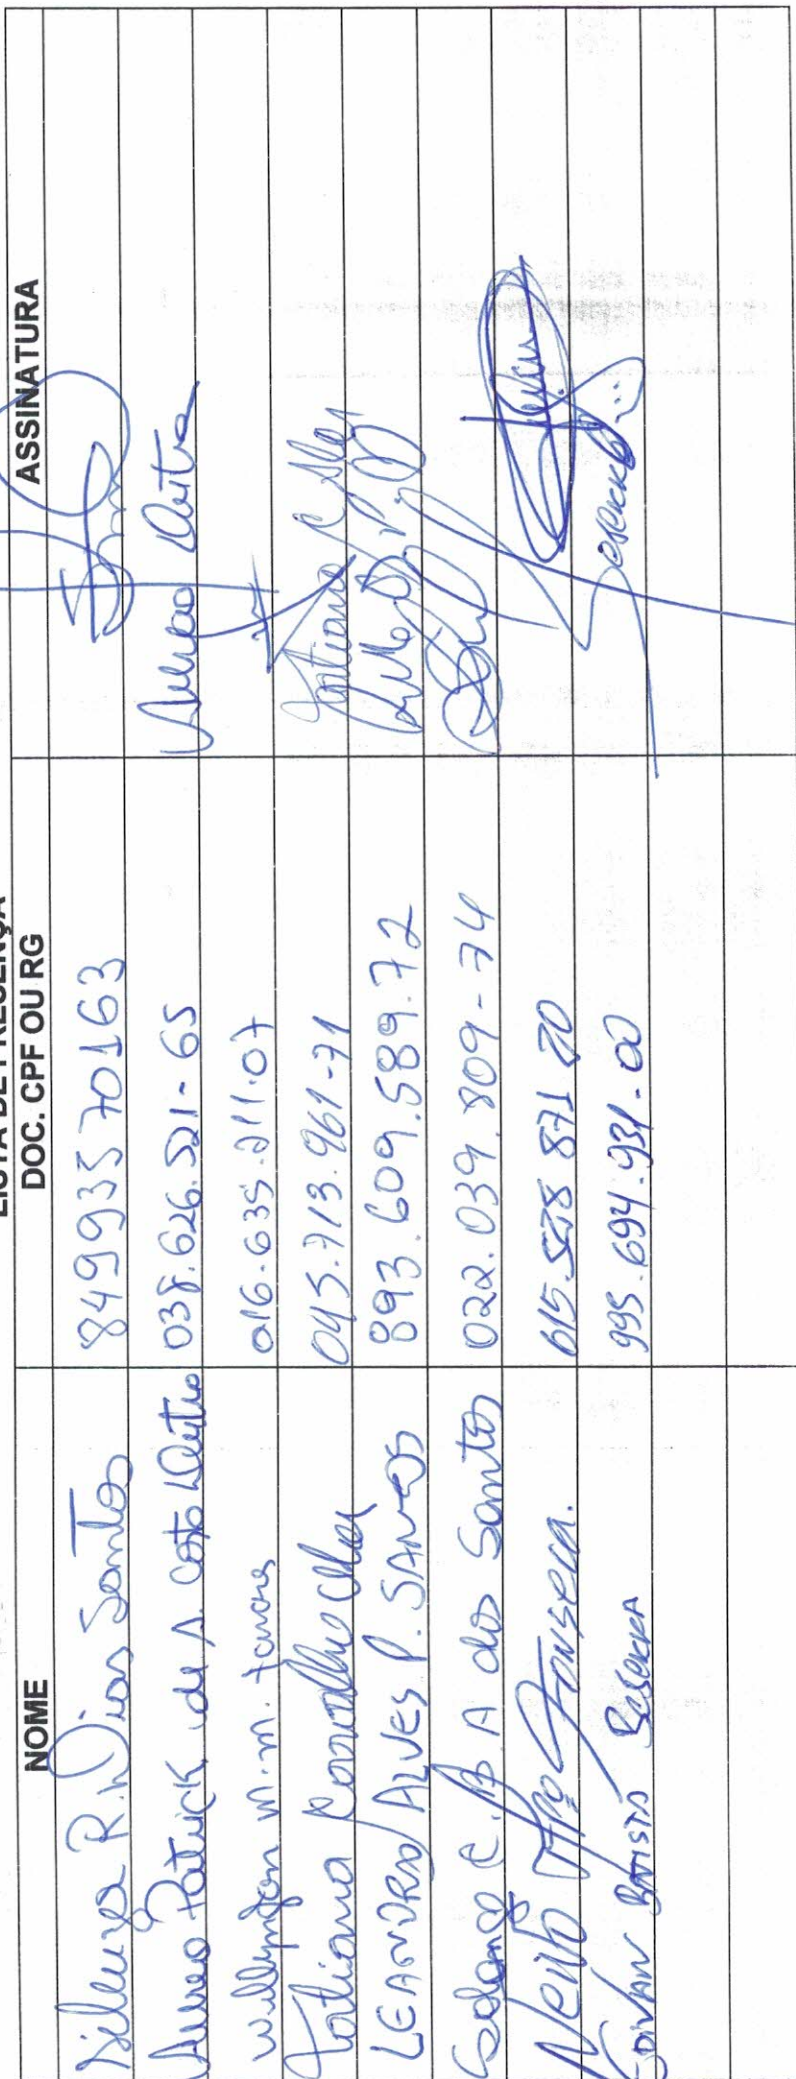 LISTA DE PRESENÇA
NOME DOC. CPF OU RG ASSINATURA
R. Dias Santos 84993570163
Aureo Patrick de A. Costa Dutra 038.626.521-65 Aureo Dutra
Willyngton M.M. Tavares 016.635.211.07
Tatiana Carvalho Alves 045.713.961-71 Tatiana C. Alves
LEANDRO ALVES P. SANTOS 893.609.589.72
Solange C. B. A dos Santos 022.039.809-74
Fonseca. 615.528 871 20
BATISTA BESERRA 995.694.931-00